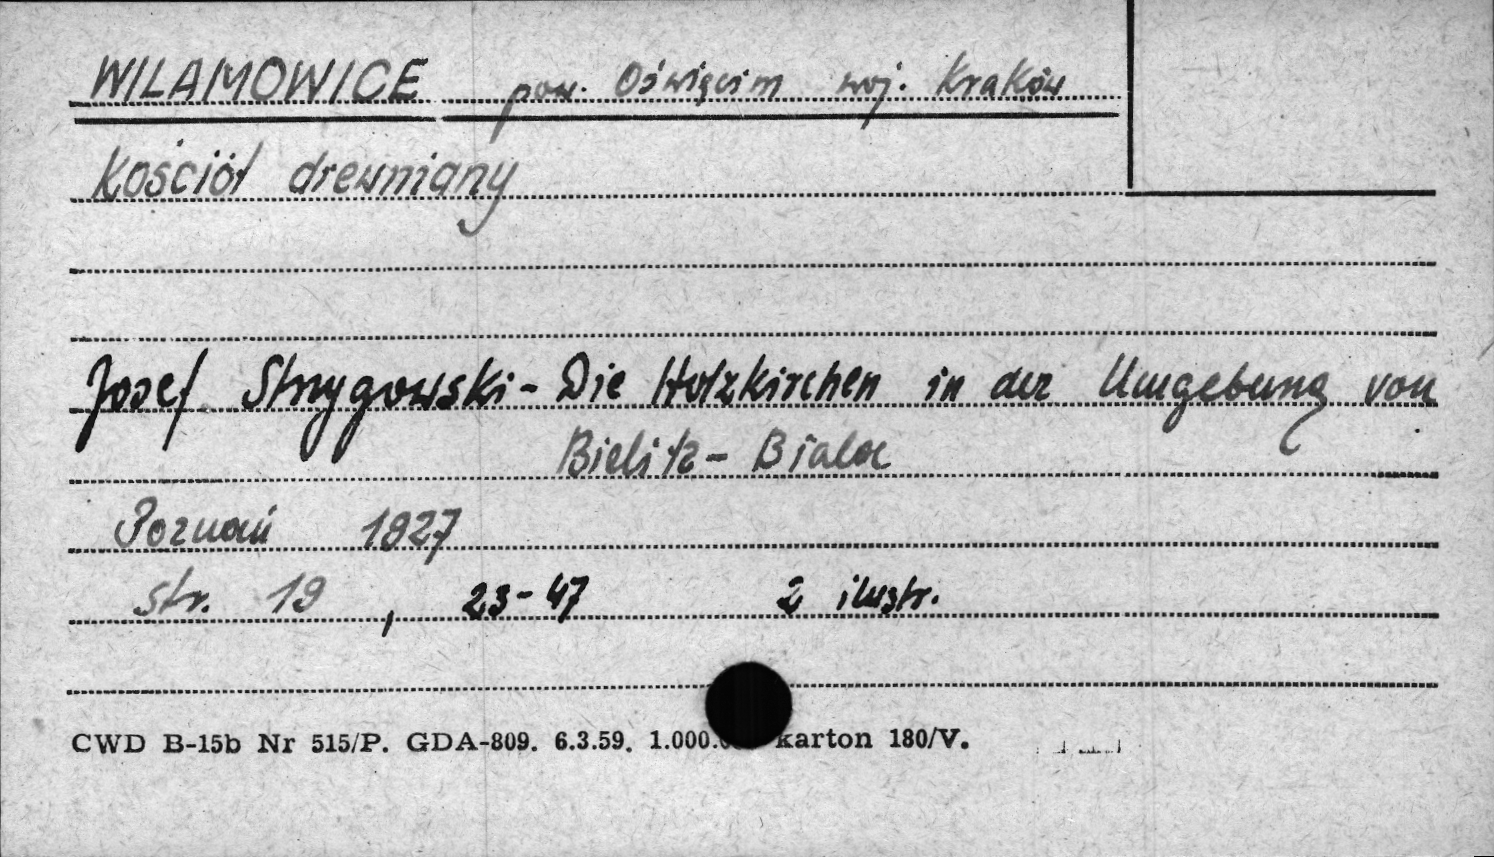 WILAMOWICE pow. Oświęcim woj. Kraków
Kościół drewniany
Josef Strzygowski - Die Holzkirchen in der Umgebung von
Bielitz - Biala
Poznań 1927
str. 19, 23-47 2 ilustr.
CWD B-15b Nr 515/P. GDA-809. 6.3.59. 1.000. karton 180/V.